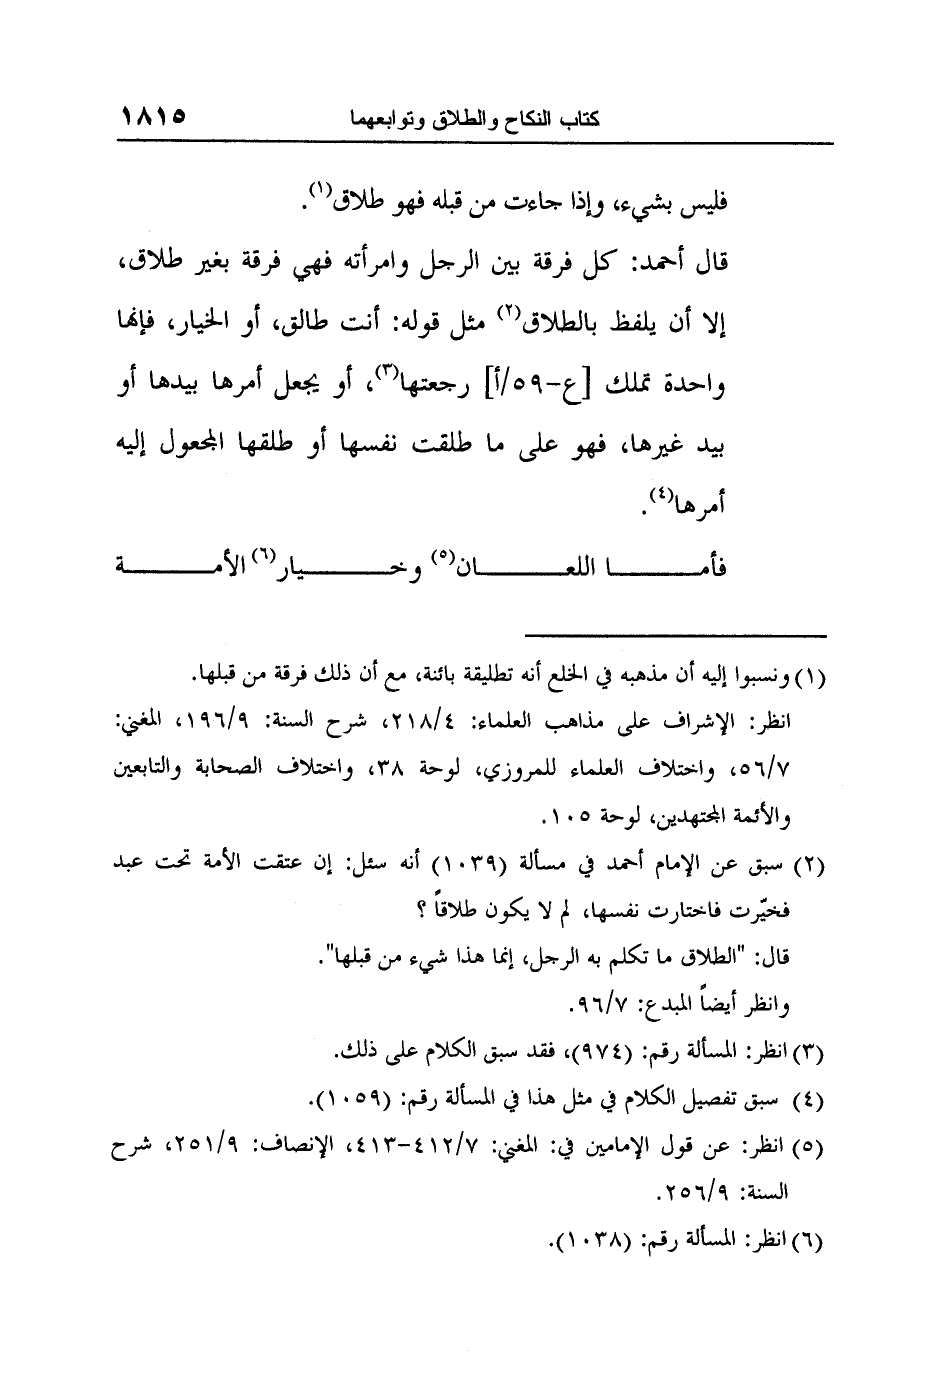 كتاب النكاح والطلاق وتوابعهما ١٨١٥
فليس بشيء، وإذا جاءت من قبله فهو طلاق(١).
قال أحمد: كل فرقة بين الرجل وامرأته فهي فرقة بغير طلاق،
إلا أن يلفظ بالطلاق(٢) مثل قوله: أنت طالق، أو الخيار، فإنها
واحدة تملك [ع-٥٩/أ] رجعتها(٣)، أو يجعل أمرها بيدها أو
بيد غيرها، فهو على ما طلقت نفسها أو طلقها المجعول إليه
أمرها(٤).
فأمــــا اللعــــان(٥) وخــــيار(٦) الأمــــة
(١) ونسبوا إليه أن مذهبه في الخلع أنه تطليقة بائنة، مع أن ذلك فرقة من قبلها.
انظر: الإشراف على مذاهب العلماء: ٢١٨/٤، شرح السنة: ١٩٦/٩، المغني:
٥٦/٧، واختلاف العلماء للمروزي، لوحة ٣٨، واختلاف الصحابة والتابعين
والأئمة المجتهدين، لوحة ١٠٥.
(٢) سبق عن الإمام أحمد في مسألة (١٠٣٩) أنه سئل: إن عتقت الأمة تحت عبد
فخيّرت فاختارت نفسها، لم لا يكون طلاقاً ؟
قال: "الطلاق ما تكلم به الرجل، إنما هذا شيء من قبلها".
وانظر أيضاً المبدع: ٩٦/٧.
(٣) انظر: المسألة رقم: (٩٧٤)، فقد سبق الكلام على ذلك.
(٤) سبق تفصيل الكلام في مثل هذا في المسألة رقم: (١٠٥٩).
(٥) انظر: عن قول الإمامين في: المغني: ٤١٢/٧-٤١٣، الإنصاف: ٢٥١/٩، شرح
السنة: ٢٥٦/٩.
(٦) انظر: المسألة رقم: (١٠٣٨).